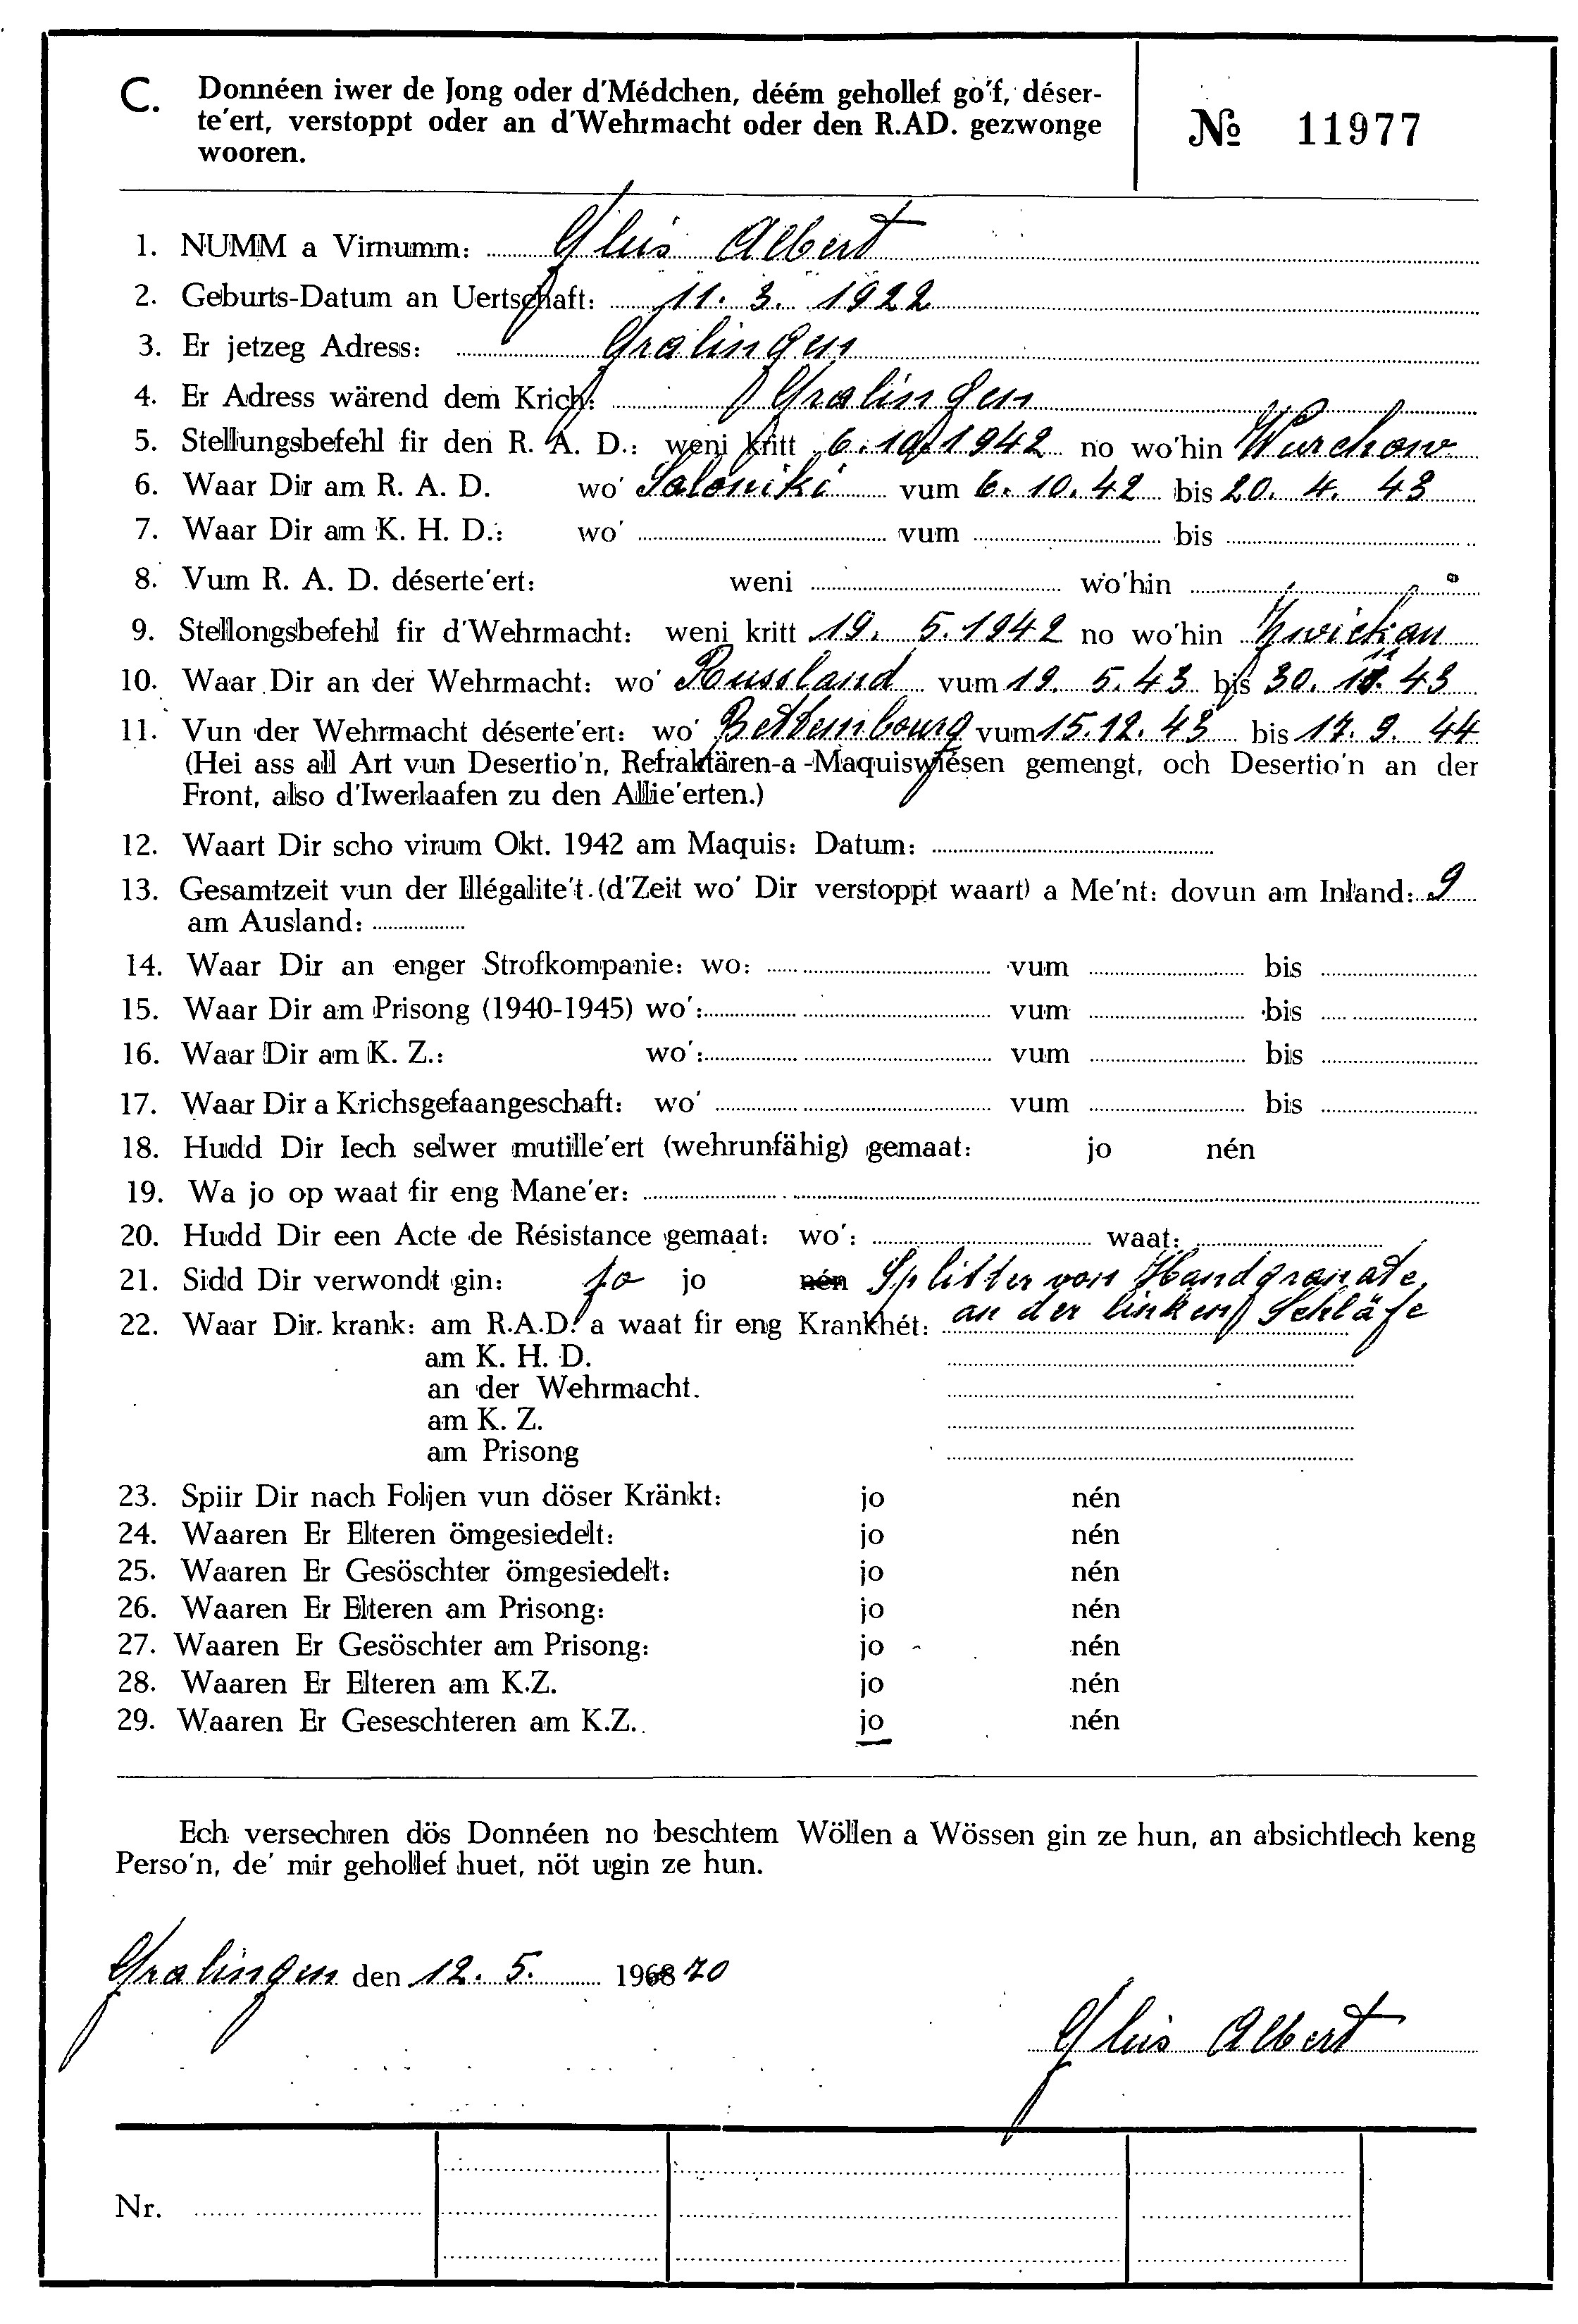 C. Donnéen iwer de Jong oder d'Médchen, déém gehollef go'f, déser-
te'ert, verstoppt oder an d'Wehrmacht oder den R.AD. gezwonge
wooren.
№ 11977
1. NUMM a Virnumm: Gleis Albert
2. Geburts-Datum an Uertschaft: 11. 3. 1922
3. Er jetzeg Adress: Gralingen
4. Er Adress wärend dem Krich: Gralingen
5. Stellungsbefehl fir den R. A. D.: weni kritt 6. 10. 1942 no wo'hin Wurchow
6. Waar Dir am R. A. D. wo' Saloniki vum 6. 10. 42 bis 20. 4. 43
7. Waar Dir am K. H. D.: wo' vum bis
8. Vum R. A. D. déserte'ert: weni wo'hin
9. Stellongsbefehl fir d'Wehrmacht: weni kritt 19. 5. 1942 no wo'hin Zwickau
10. Waar Dir an der Wehrmacht: wo' Russland vum 19. 5. 43 bis 30. 11. 43
11. Vun der Wehrmacht déserte'ert: wo' Bettembourg vum 15. 12. 43 bis 17. 9. 44
(Hei ass all Art vun Desertio'n, Refraktären-a -Maquiswiesen gemengt, och Desertio'n an der
Front, also d'Iwerlaafen zu den Allie'erten.)
12. Waart Dir scho virum Okt. 1942 am Maquis: Datum:
13. Gesamtzeit vun der Illégalite't (d'Zeit wo' Dir verstoppt waart) a Me'nt: dovun am Inland: 9
am Ausland:
14. Waar Dir an enger Strofkompanie: wo: vum bis
15. Waar Dir am Prisong (1940-1945) wo': vum bis
16. Waar Dir am K. Z.: wo': vum bis
17. Waar Dir a Krichsgefaangeschaft: wo' vum bis
18. Hudd Dir Iech selwer mutille'ert (wehrunfähig) gemaat: jo nén
19. Wa jo op waat fir eng Mane'er:
20. Hudd Dir een Acte de Résistance gemaat: wo': waat:
21. Sidd Dir verwondt gin: jo jo nén Splitter von Handgranate
22. Waar Dir krank: am R.A.D. a waat fir eng Krankhét: an der linken Schläfe
am K. H. D.
an der Wehrmacht.
am K. Z.
am Prisong
23. Spiir Dir nach Foljen vun döser Kränkt: jo nén
24. Waaren Er Elteren ömgesiedelt: jo nén
25. Waaren Er Gesöschter ömgesiedelt: jo nén
26. Waaren Er Elteren am Prisong: jo nén
27. Waaren Er Gesöschter am Prisong: jo nén
28. Waaren Er Elteren am K.Z. jo nén
29. Waaren Er Geseschteren am K.Z. jo nén
Ech versechren dös Donnéen no beschtem Wöllen a Wössen gin ze hun, an absichtlech keng
Perso'n, de' mir gehollef huet, nöt ugin ze hun.
Gralingen den 12. 5. 1968 70
Gleis Albert
Nr.